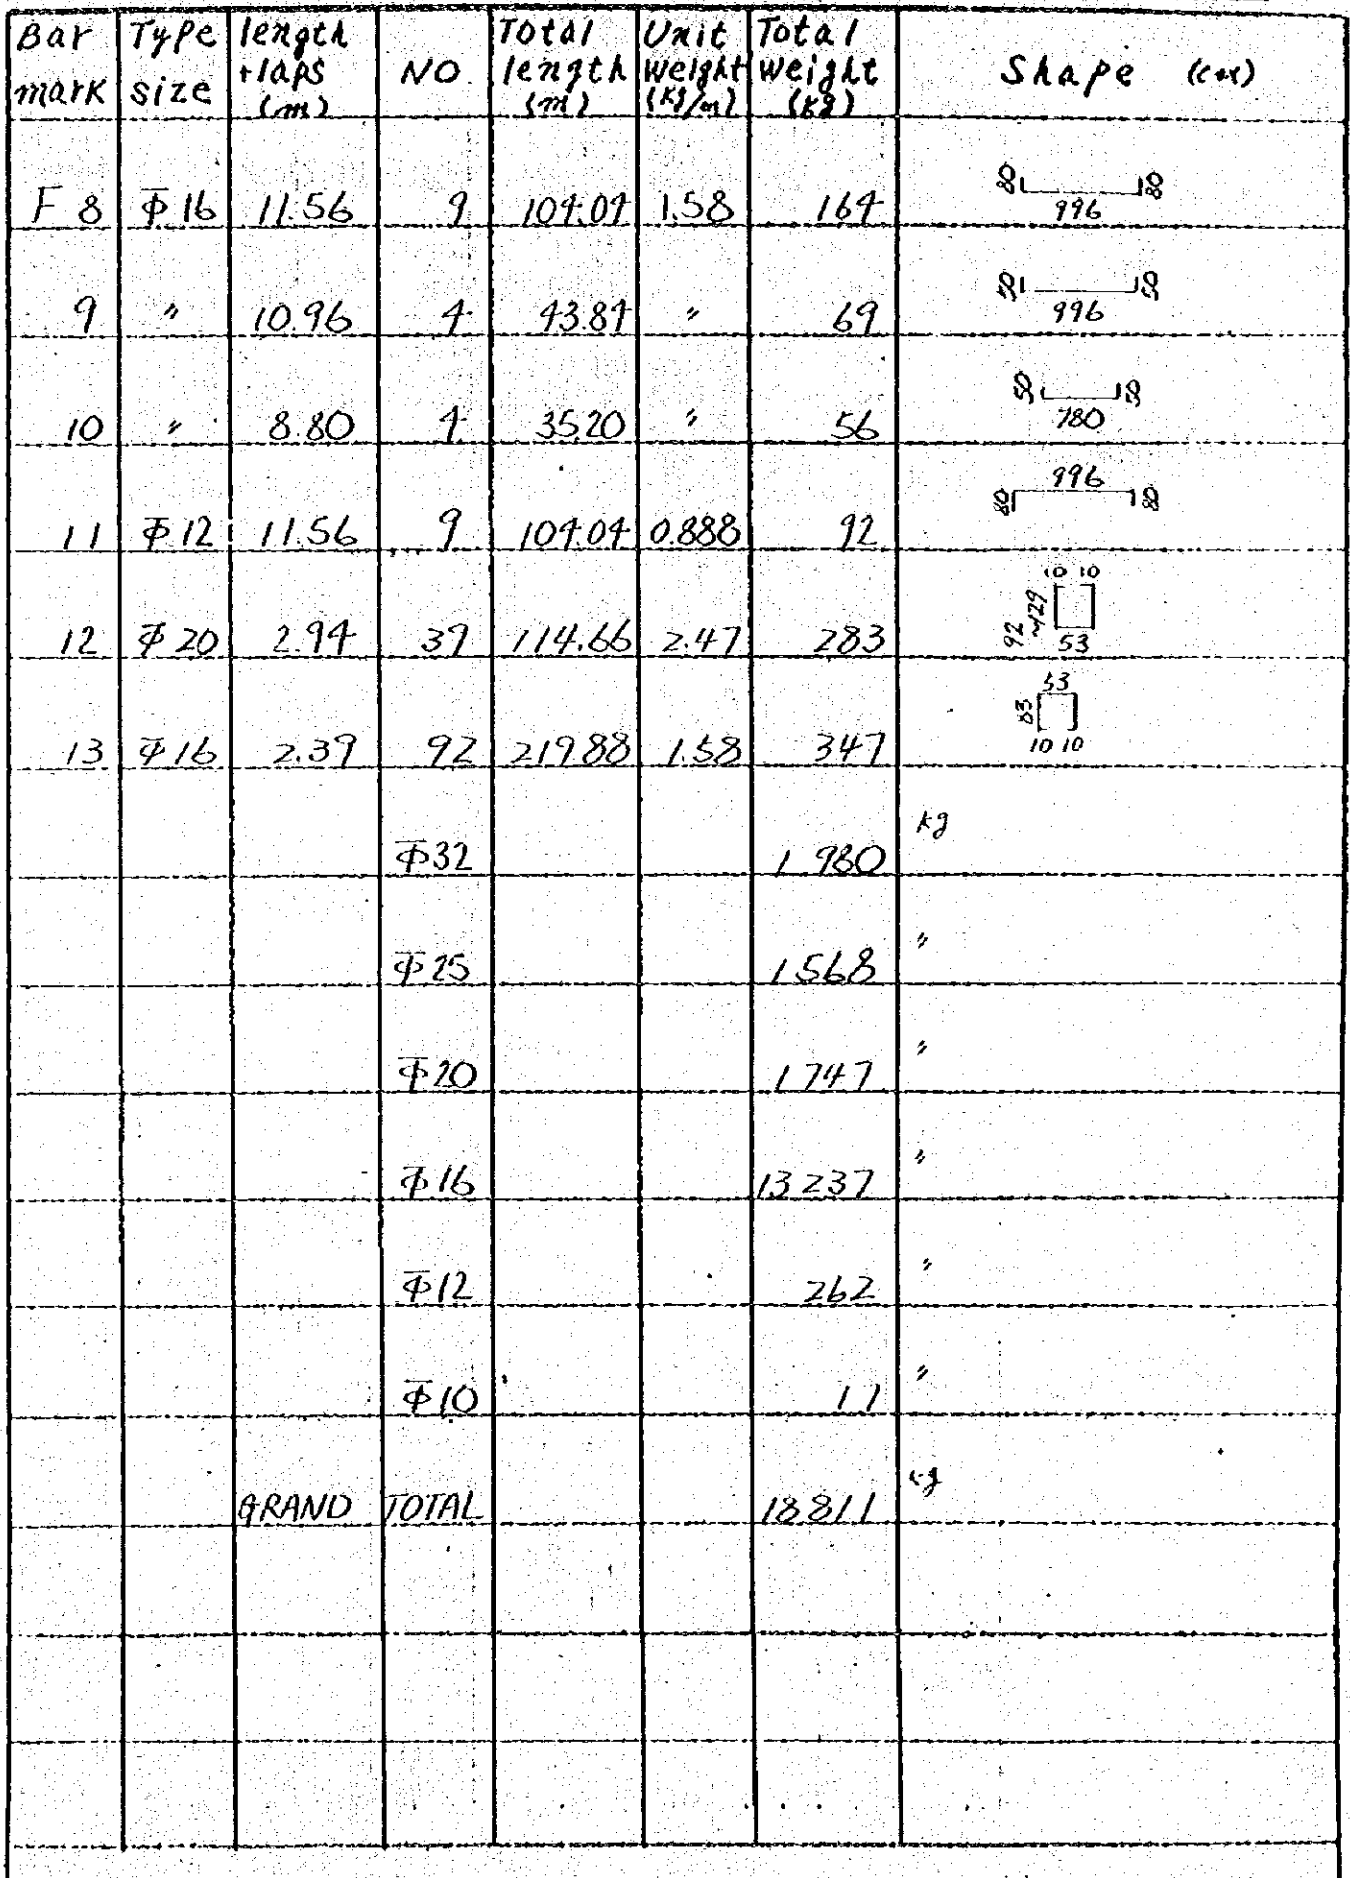 Bar mark Type size length +laps (m) NO. Total length (m) Unit weight (kg/m) Total weight (kg) Shape (cm)
F 8 Φ16 11.56 9 104.04 1.58 164 80 996 80
9 〃 10.96 4 43.84 〃 69 50 996 50
10 〃 8.80 4 35.20 〃 56 50 780 50
11 Φ12 11.56 9 104.04 0.888 92 80 996 80
12 Φ20 2.94 39 114.66 2.47 283 92~129 10 10 53
13 Φ16 2.39 92 219.88 1.58 347 83 53 10 10
Φ32 1 980 kg
Φ25 1 568 〃
Φ20 1 747 〃
Φ16 13 237 〃
Φ12 262 〃
Φ10 17 〃
GRAND TOTAL 18 811 kg